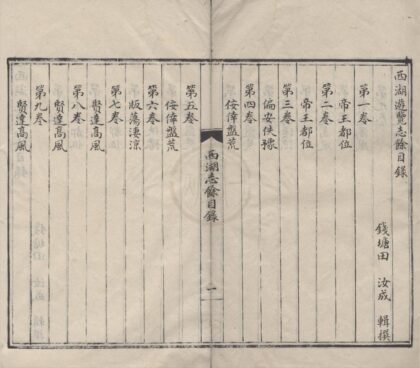 西湖遊覽志餘目錄
錢塘田 汝成 輯撰
第一卷
帝王都位
第二卷
帝王都位
第三卷
偏安佚豫
第四卷
佞倖盤荒
西湖志餘目錄
一
第五卷
佞倖盤荒
第六卷
版蕩淒涼
第七卷
賢達高風
第八卷
賢達高風
第九卷
賢達高風